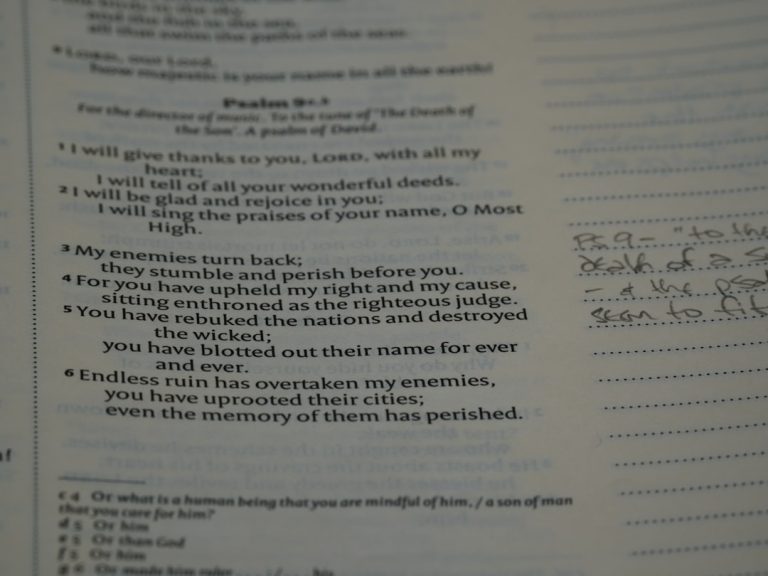 all that swim the paths of the seas.
9 LORD, our Lord,
how majestic is your name in all the earth!
Psalm 9
For the director of music. To the tune of 'The Death of
the Son'. A psalm of David.
1 I will give thanks to you, LORD, with all my
heart;
I will tell of all your wonderful deeds.
2 I will be glad and rejoice in you;
I will sing the praises of your name, O Most
High.
3 My enemies turn back;
they stumble and perish before you.
4 For you have upheld my right and my cause,
sitting enthroned as the righteous judge.
5 You have rebuked the nations and destroyed
the wicked;
you have blotted out their name for ever
and ever.
6 Endless ruin has overtaken my enemies,
you have uprooted their cities;
even the memory of them has perished.
c 4 Or what is a human being that you are mindful of him, / a son of man
that you care for him?
d 5 Or him
e 5 Or than God
f 5 Or him
Or made him ruler
Ps 9 – "to the
death of a S
– & the psal
seem to fit